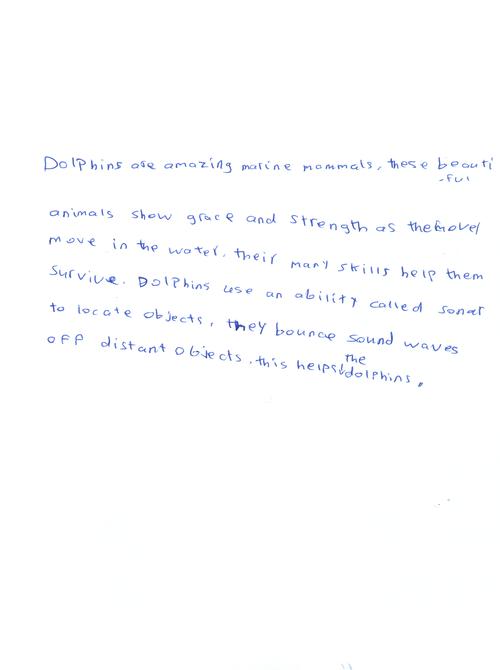 Dolphins are amazing marine mammals, these beauti
-ful
animals show grace and strength as they
move in the water. their many skills help them
survive. Dolphins use an ability called sonar
to locate objects, they bounce sound waves
off distant objects. this helps the dolphins.